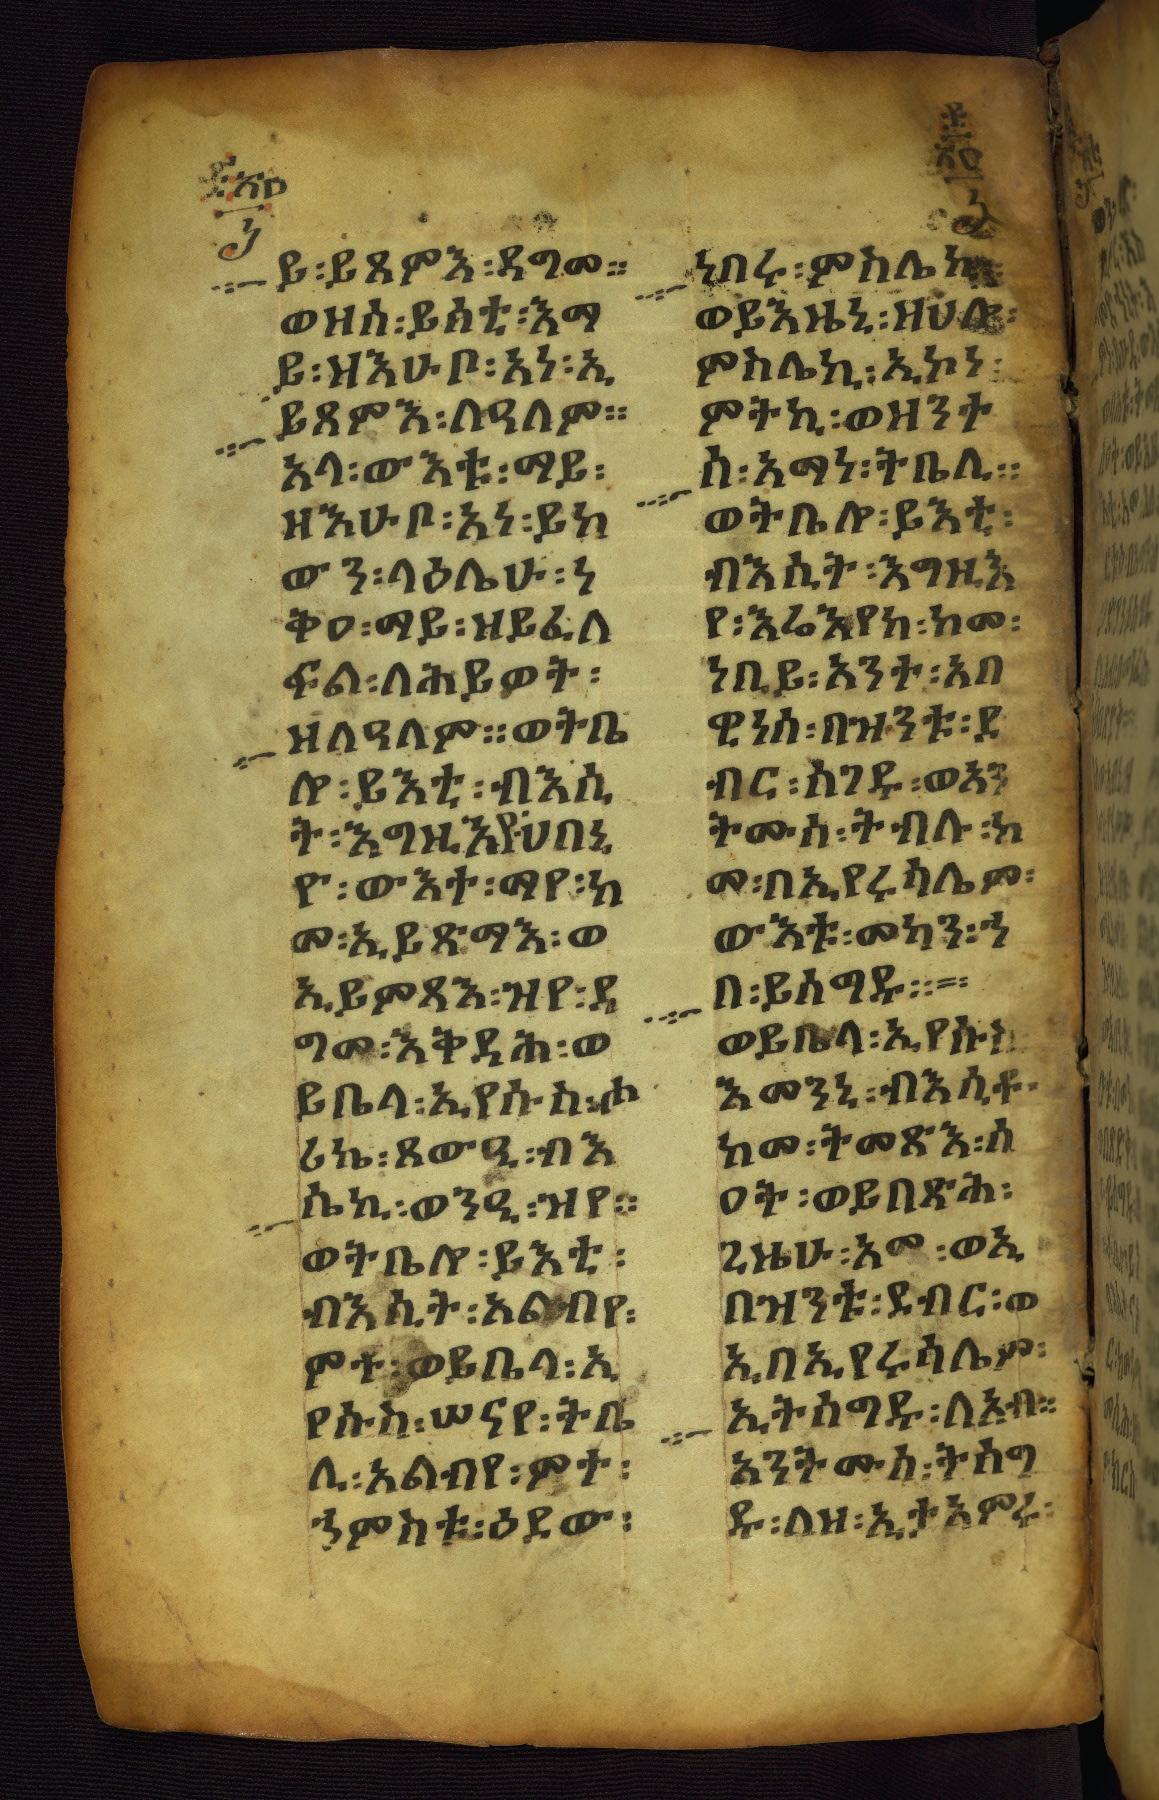 ይ፡ይጸምእ፡ዳግመ።
ወዘሰ፡ይሰቲ፡እማ
ይ፡ዝእሁቦ፡አነ፡ኢ
ይጸምእ፡ለዓለም።
አላ፡ውእቱ፡ማይ፡
ዘእሁቦ፡አነ፡ይከ
ውን፡ላዕሌሁ፡ነ
ቅዐ፡ማይ፡ዝይፈለ
ፍል፡ለሕይወት፡
ዝለዓለም።ወትቤ
ሎ፡ይእቲ፡ብእሲ
ት፡እግዚእየሀበኒ
ዮ፡ውእተ፡ማየ፡ከ
መ፡ኢይጽማእ፡ወ
ኢይምጻእ፡ዝየ፡ዳ
ግመ፡እቅዳሕ፡ወ
ይቤላ፡ኢየሱስ፡ሖ
ሪኬ፡ጸውዒ፡ብእ
ሴኪ፡ወንዒ፡ዝየ።
ወትቤሎ፡ይእቲ፡
ብእሲት፡አልብየ፡
ምተ፡ወይቤላ፡ኢ
የሱስ፡ሠናየ፡ትቤ
ሊ፡አልብየ፡ምተ፡
ኀምስቱ፡ዕደው፡
ነበሩ፡ምስሌኪ፡
ወይእዜኒ፡ዘሀሎ፡
ምስሌኪ፡ኢኮነ፡
ምትኪ፡ወዘንተ
ሰ፡አማነ፡ትቤሊ።
ወትቤሎ፡ይእቲ፡
ብእሲት፡እግዚእ
የ፡እሬእየከ፡ከመ፡
ነቢይ፡አንተ፡አበ
ዊነሰ፡በዝንቱ፡ደ
ብር፡ሰገዱ፡ወአን
ትሙሰ፡ትብሉ፡ከ
መ፡በኢየሩሳሌም፡
ውእቱ፡መካን፡ኀ
በ፡ይሰግዱ።
ወይቤላ፡ኢየሱስ
እመንኒ፡ብእሲቶ፡
ከመ፡ትመጽእ፡ሰ
ዐት፡ወይበጽሕ፡
ጊዜሁ፡አመ፡ወኢ
በዝንቱ፡ደብር፡ወ
ኢበኢየሩሳሌም፡
ኢትሰግዱ፡ለአብ።
አንትሙሰ፡ትሰግ
ዱ፡ለዝ፡ኢታአምሩ፡